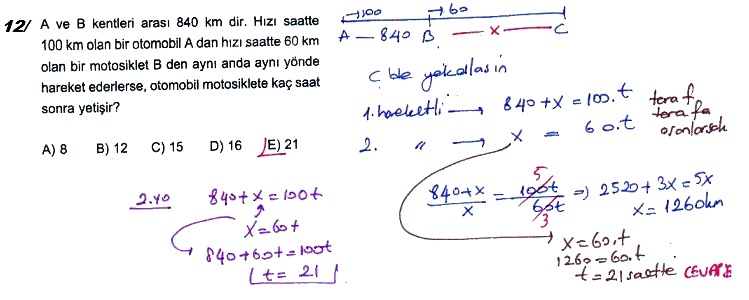 12/ A ve B kentleri arası 840 km dir. Hızı saatte
100 km olan bir otomobil A dan hızı saatte 60 km
olan bir motosiklet B den aynı anda aynı yönde
hareket ederlerse, otomobil motosiklete kaç saat
sonra yetişir?
A) 8 B) 12 C) 15 D) 16 E) 21
→100 →60
A — 840 B — x — C
C de yakalasın
1. hareketli → 840+x = 100.t
2. " → x = 60.t
taraf
tarafa
oranlarsak
840+x / x = 100t / 60t ⇒ 2520 + 3x = 5x
5
3
x = 1260km
x = 60.t
1260 = 60.t
t = 21 saatte CEVAP E
2.yo 840 + x = 100t
x = 60t
840 + 60t = 100t
t = 21